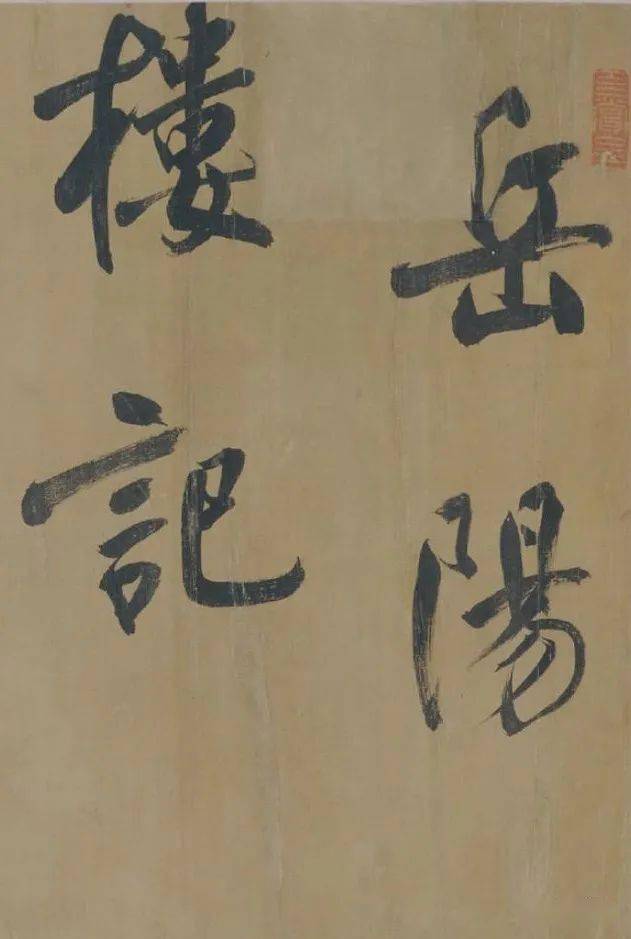 岳陽
樓記